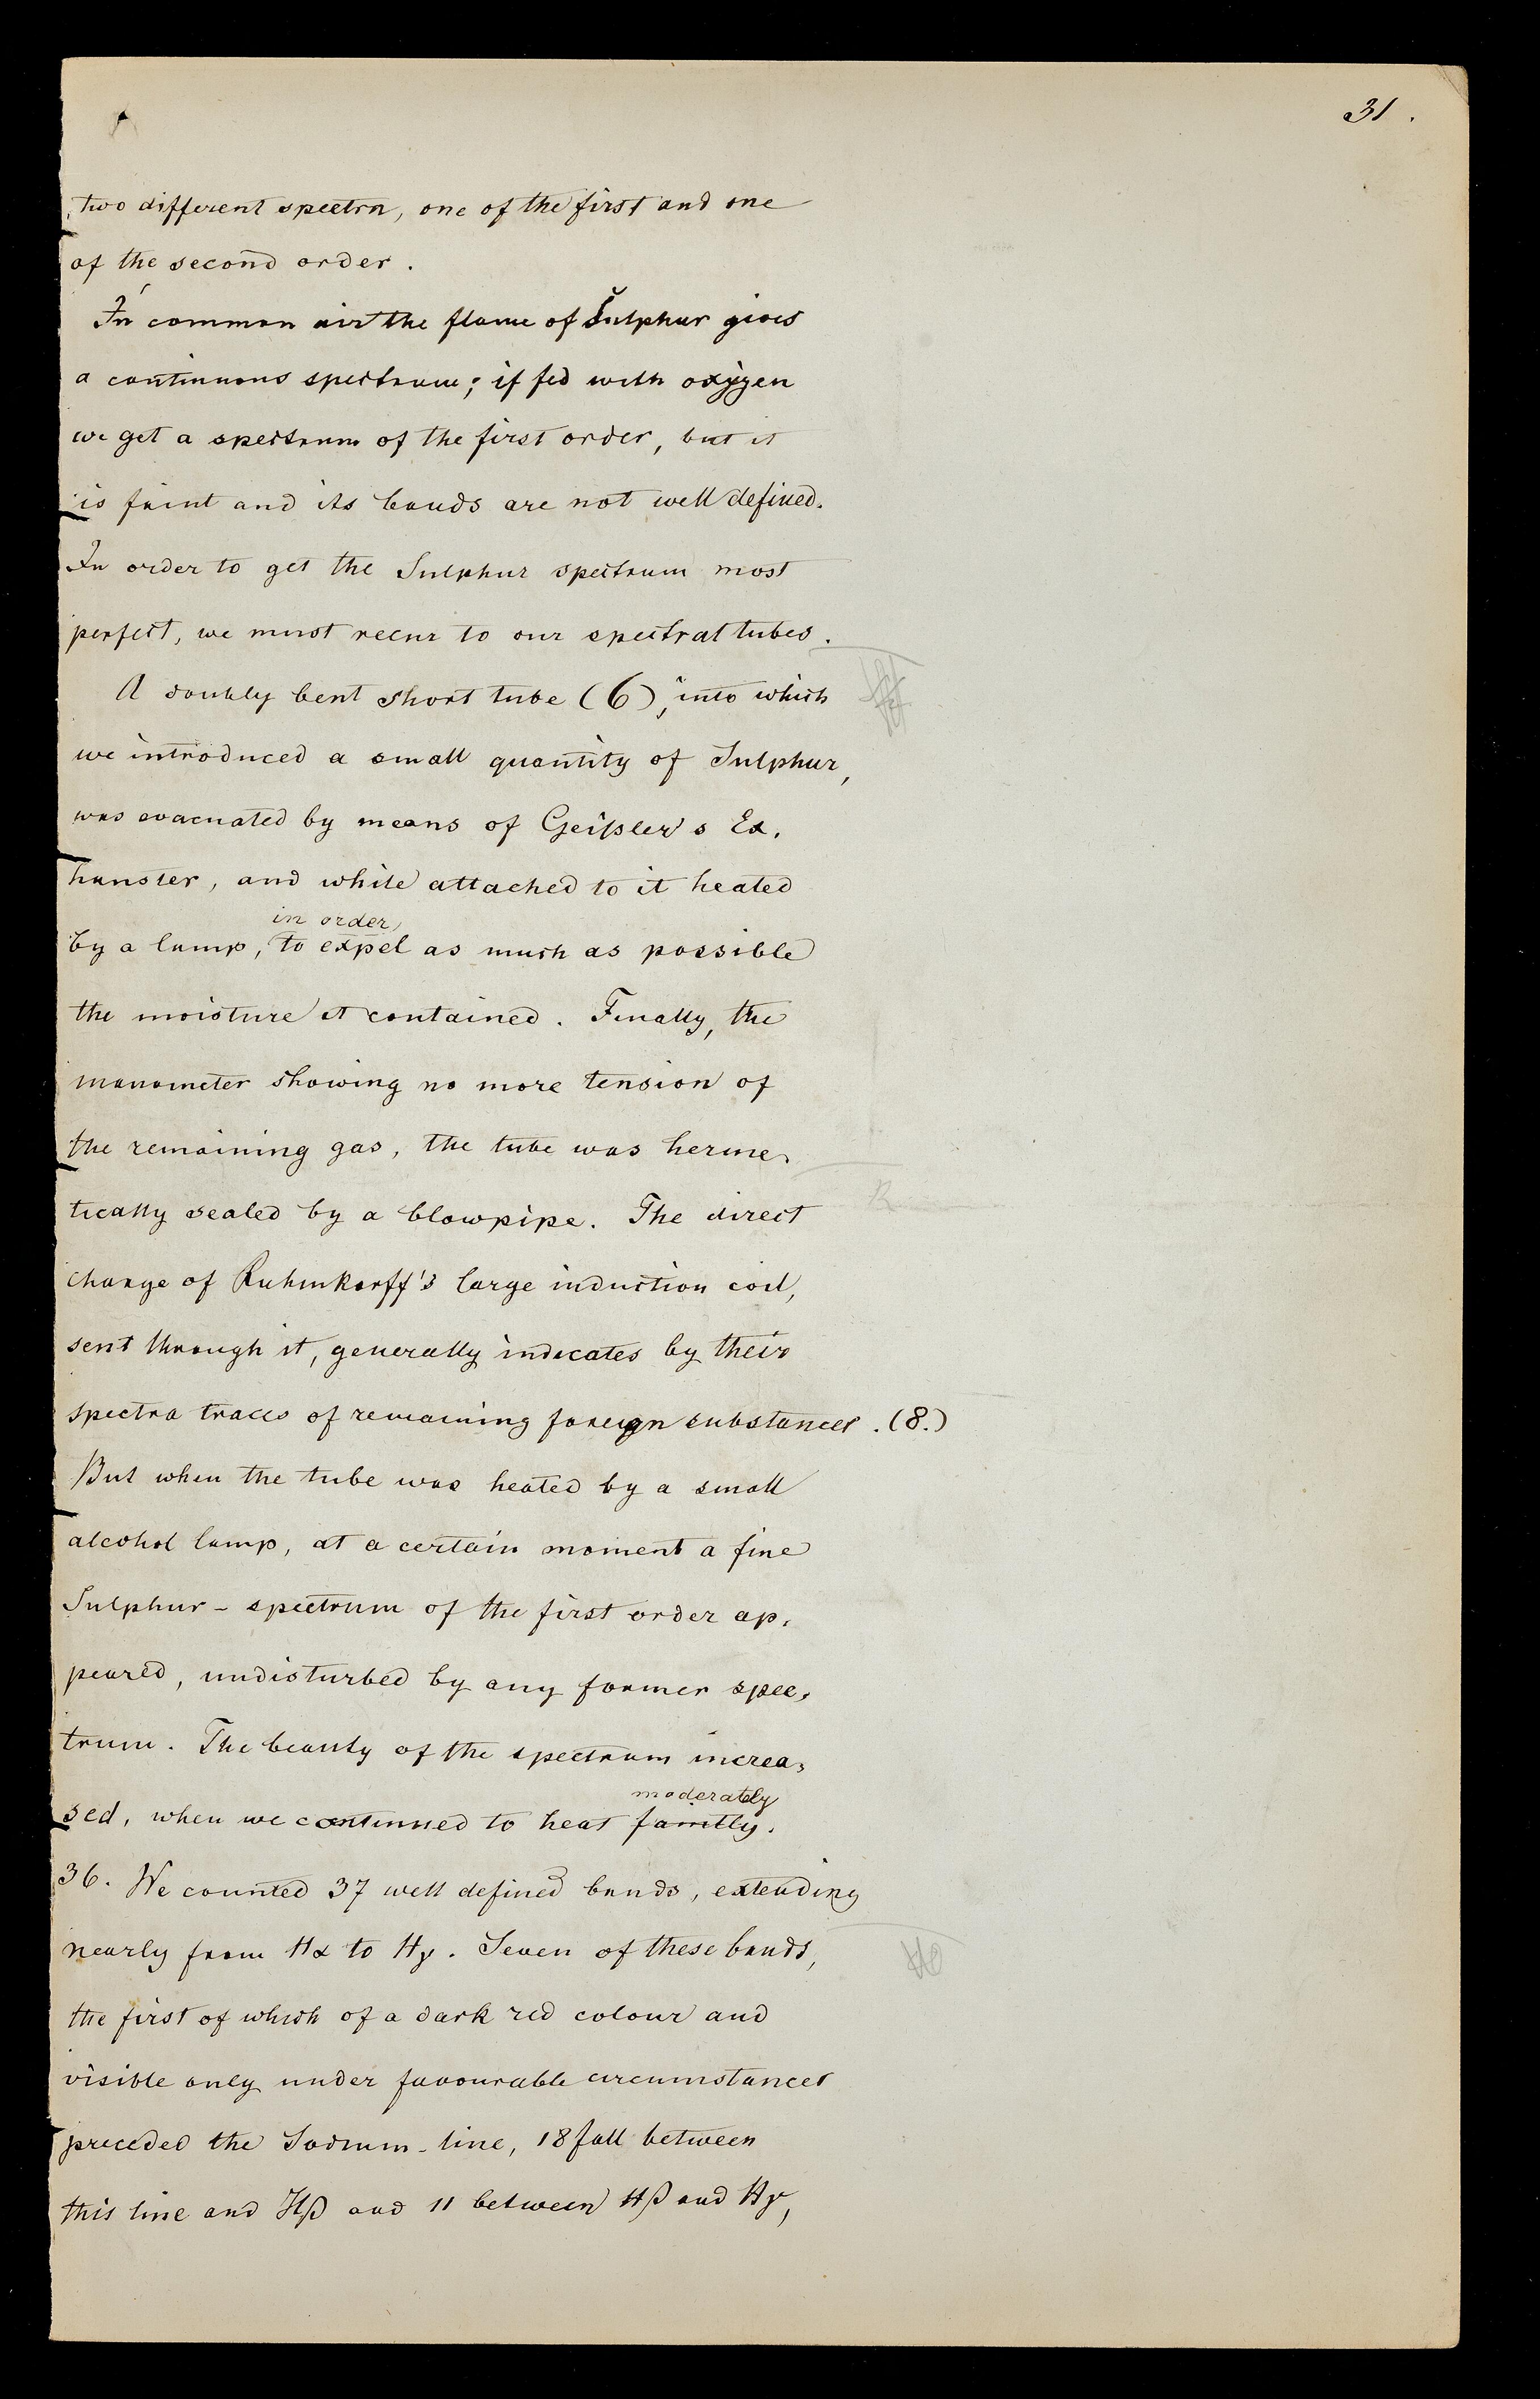 31.
two different spectra, one of the first and one
of the second order.
In common air the flame of Sulphur gives
a continuous spectrum; if fed with oxygen
we get a spectrum of the first order, but it
is faint and its bands are not well defined.
In order to get the Sulphur spectrum most
perfect, we must recur to our spectral tubes.
A doubly bent short tube (6), into which
we introduced a small quantity of Sulphur,
was evacuated by means of Geißler's Ex-
hauster, and while attached to it heated
in order
by a lamp, to expel as much as possible
the moisture it contained. Finally, the
manometer showing no more tension of
the remaining gas, the tube was herme-
tically sealed by a blowpipe. The direct
charge of Ruhmkorff's large induction coil,
sent through it, generally indicates by their
spectra traces of remaining foreign substances. (8.)
But when the tube was heated by a small
alcohol lamp, at a certain moment a fine
Sulphur-spectrum of the first order ap-
peared, undisturbed by any former spec-
trum. The beauty of the spectrum increa-
moderately
sed, when we continued to heat faintly.
36. We counted 37 well defined bands, extending
nearly from Hα to Hγ. Seven of these bands,
the first of which of a dark red colour and
visible only under favourable circumstances
preceded the Sodium-line, 18 fall between
this line and Hβ and 11 between Hβ and Hγ,